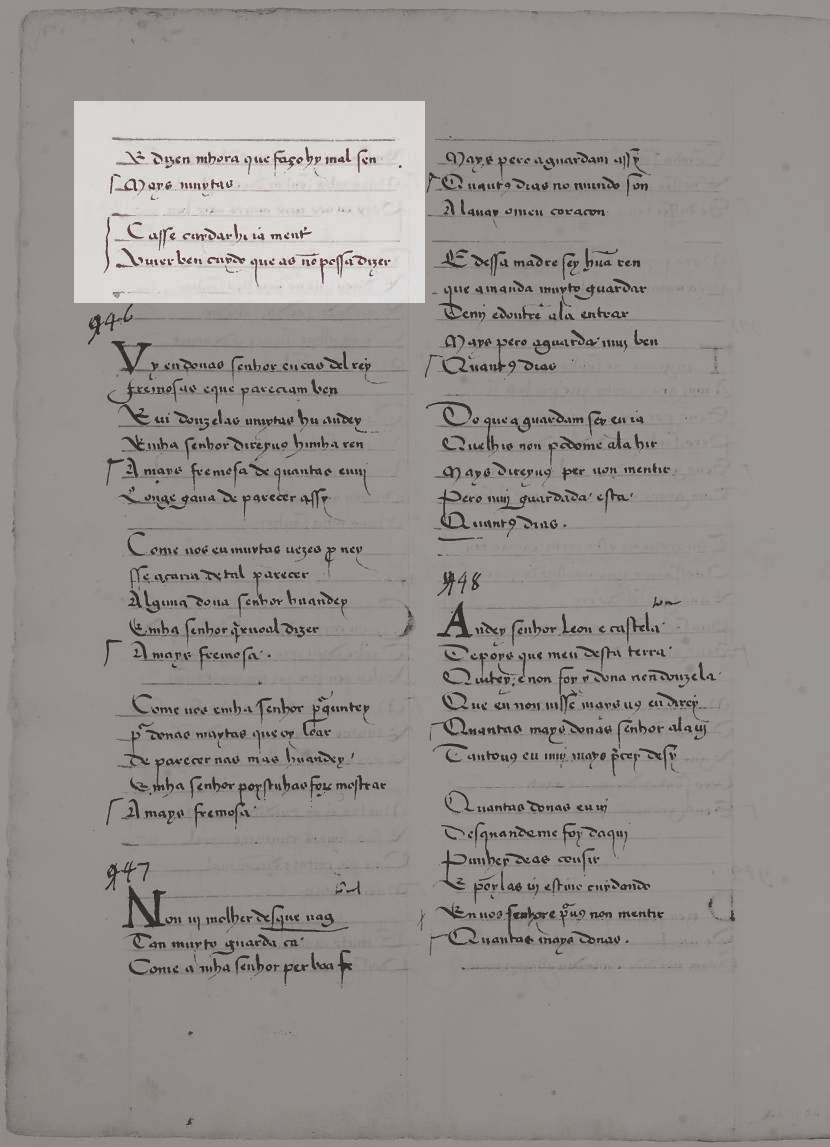 E dizen mhora que faço hy mal sen
Mays muytas
Casse cuydar hi ia ment
Aviver ben cuydo que as nō possa dizer
946
Vy en donas senhor en cas del rey
fremosas e que pareciam ben
E vi donzelas muytas hu andey
E mha senhor direyvꝯ hūnha ren
A mays fremosa de quantas eu vi
Longe gava de parecer assy
Come vos eu muytas vezes ꝑ ney
sse acaria de tal parecer
Alguna dona senhor hu andey
E mha senhor q̄rvoal dizer
A mays fremosa
Come vos e mha senhor pregūntey
pᵃ donas muytas que oy loar
de parecer nas mas hu andey
E mha senhor poys mhas foro mostrar
A mays fremosa
947
Non vi molher desque nag
Tan muyto guarda ca
Come a mha senhor per boa fe
Mays pero aguardam assy
Quantꝯ dias no mundo son
A la vay o meu coraçon
E dessa madre sey hūa ren
que a manda muyto guardar
De mj e doutre ala entrar
Mays pero aguarda muj ben
Quantꝯ dias
Do que aguardam sey eu ia
Que lhis non podome ala hir
Mays direyvꝯ per non mentir
Pero muj guardada esta
Quantꝯ dias.
948
Andey senhor Leon e castela
Depoys que meu desta terra
Quitey, e non foy y dona nen donzela
Que eu non visse mays vꝯ eu direy
Quantas mays donas senhor ala vj
Tanto vꝯ eu muj mays p̄cey desy
Quantas donas eu vj
Desquando me foy daquj
Punhey deas cousir
E poylas vj estive cuydando
En vos senhore pᵉvꝯ non mentir
Quantas mays donas.